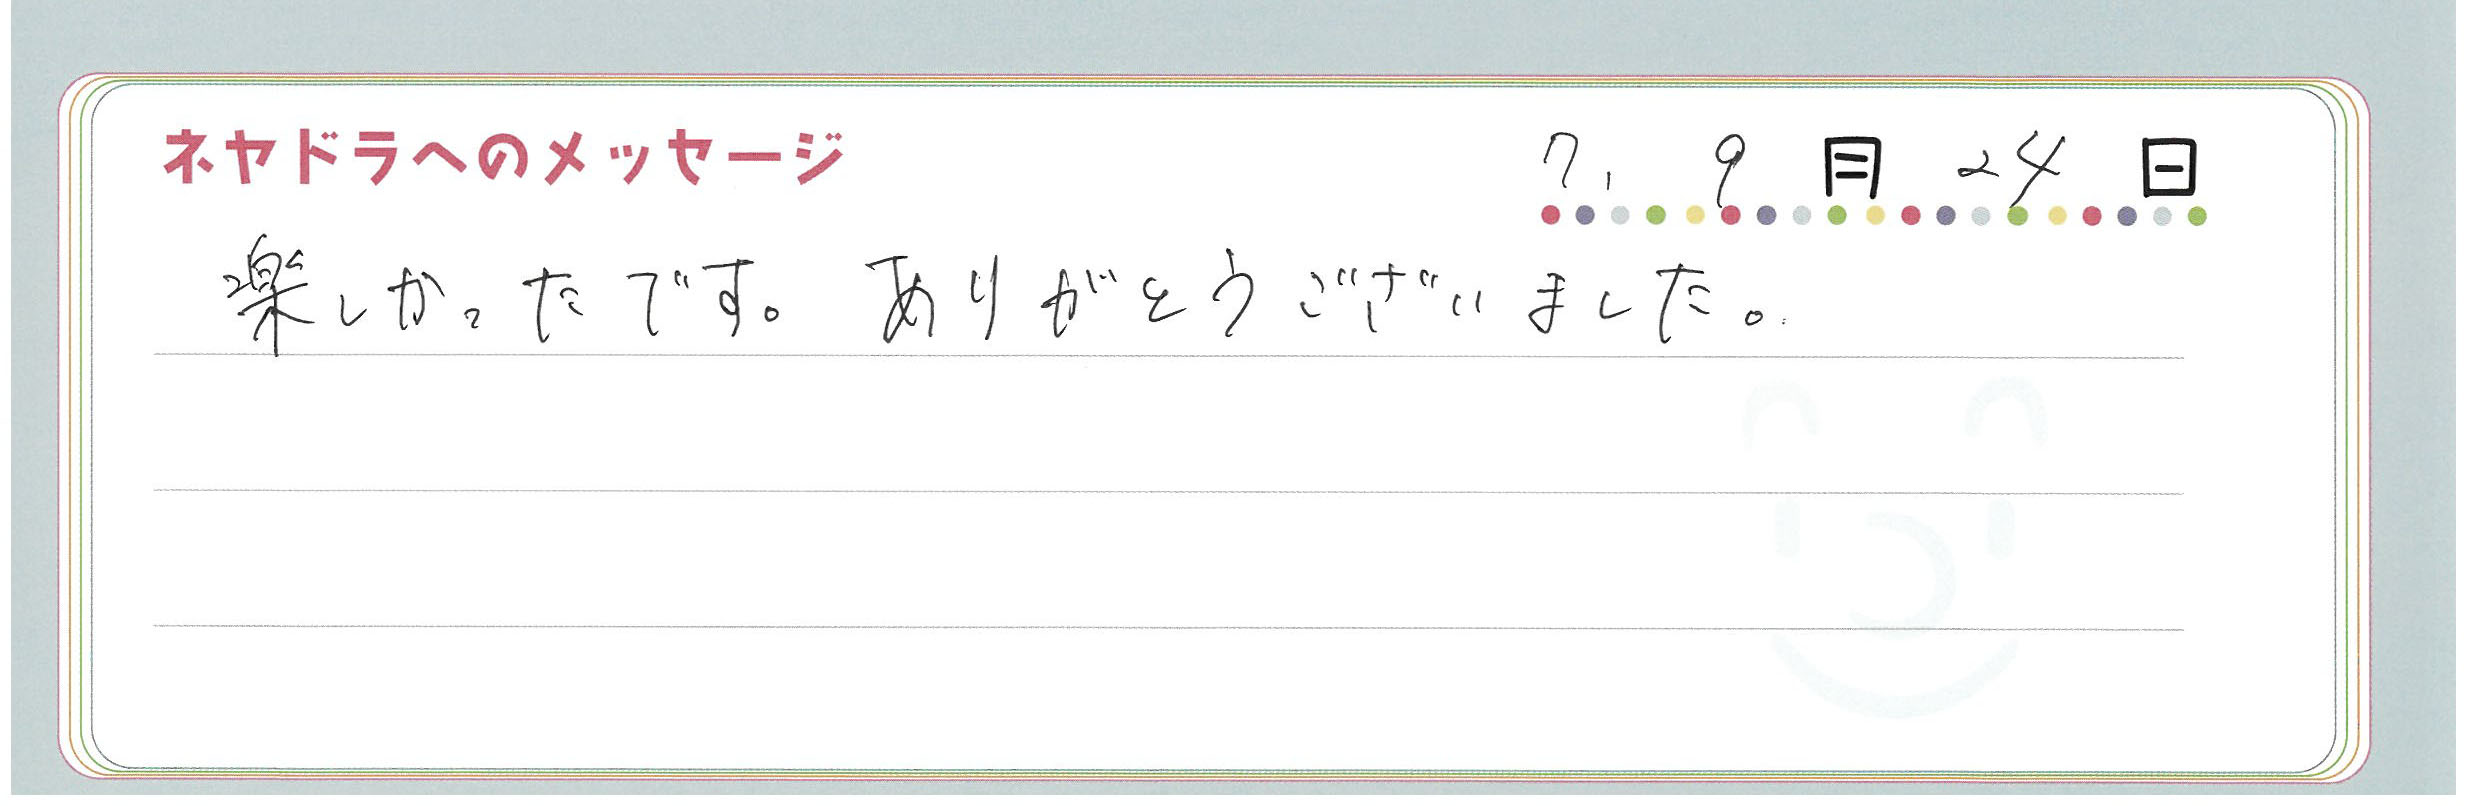 ネヤドラへのメッセージ
7, 9月24日
楽しかったです。ありがとうございました。